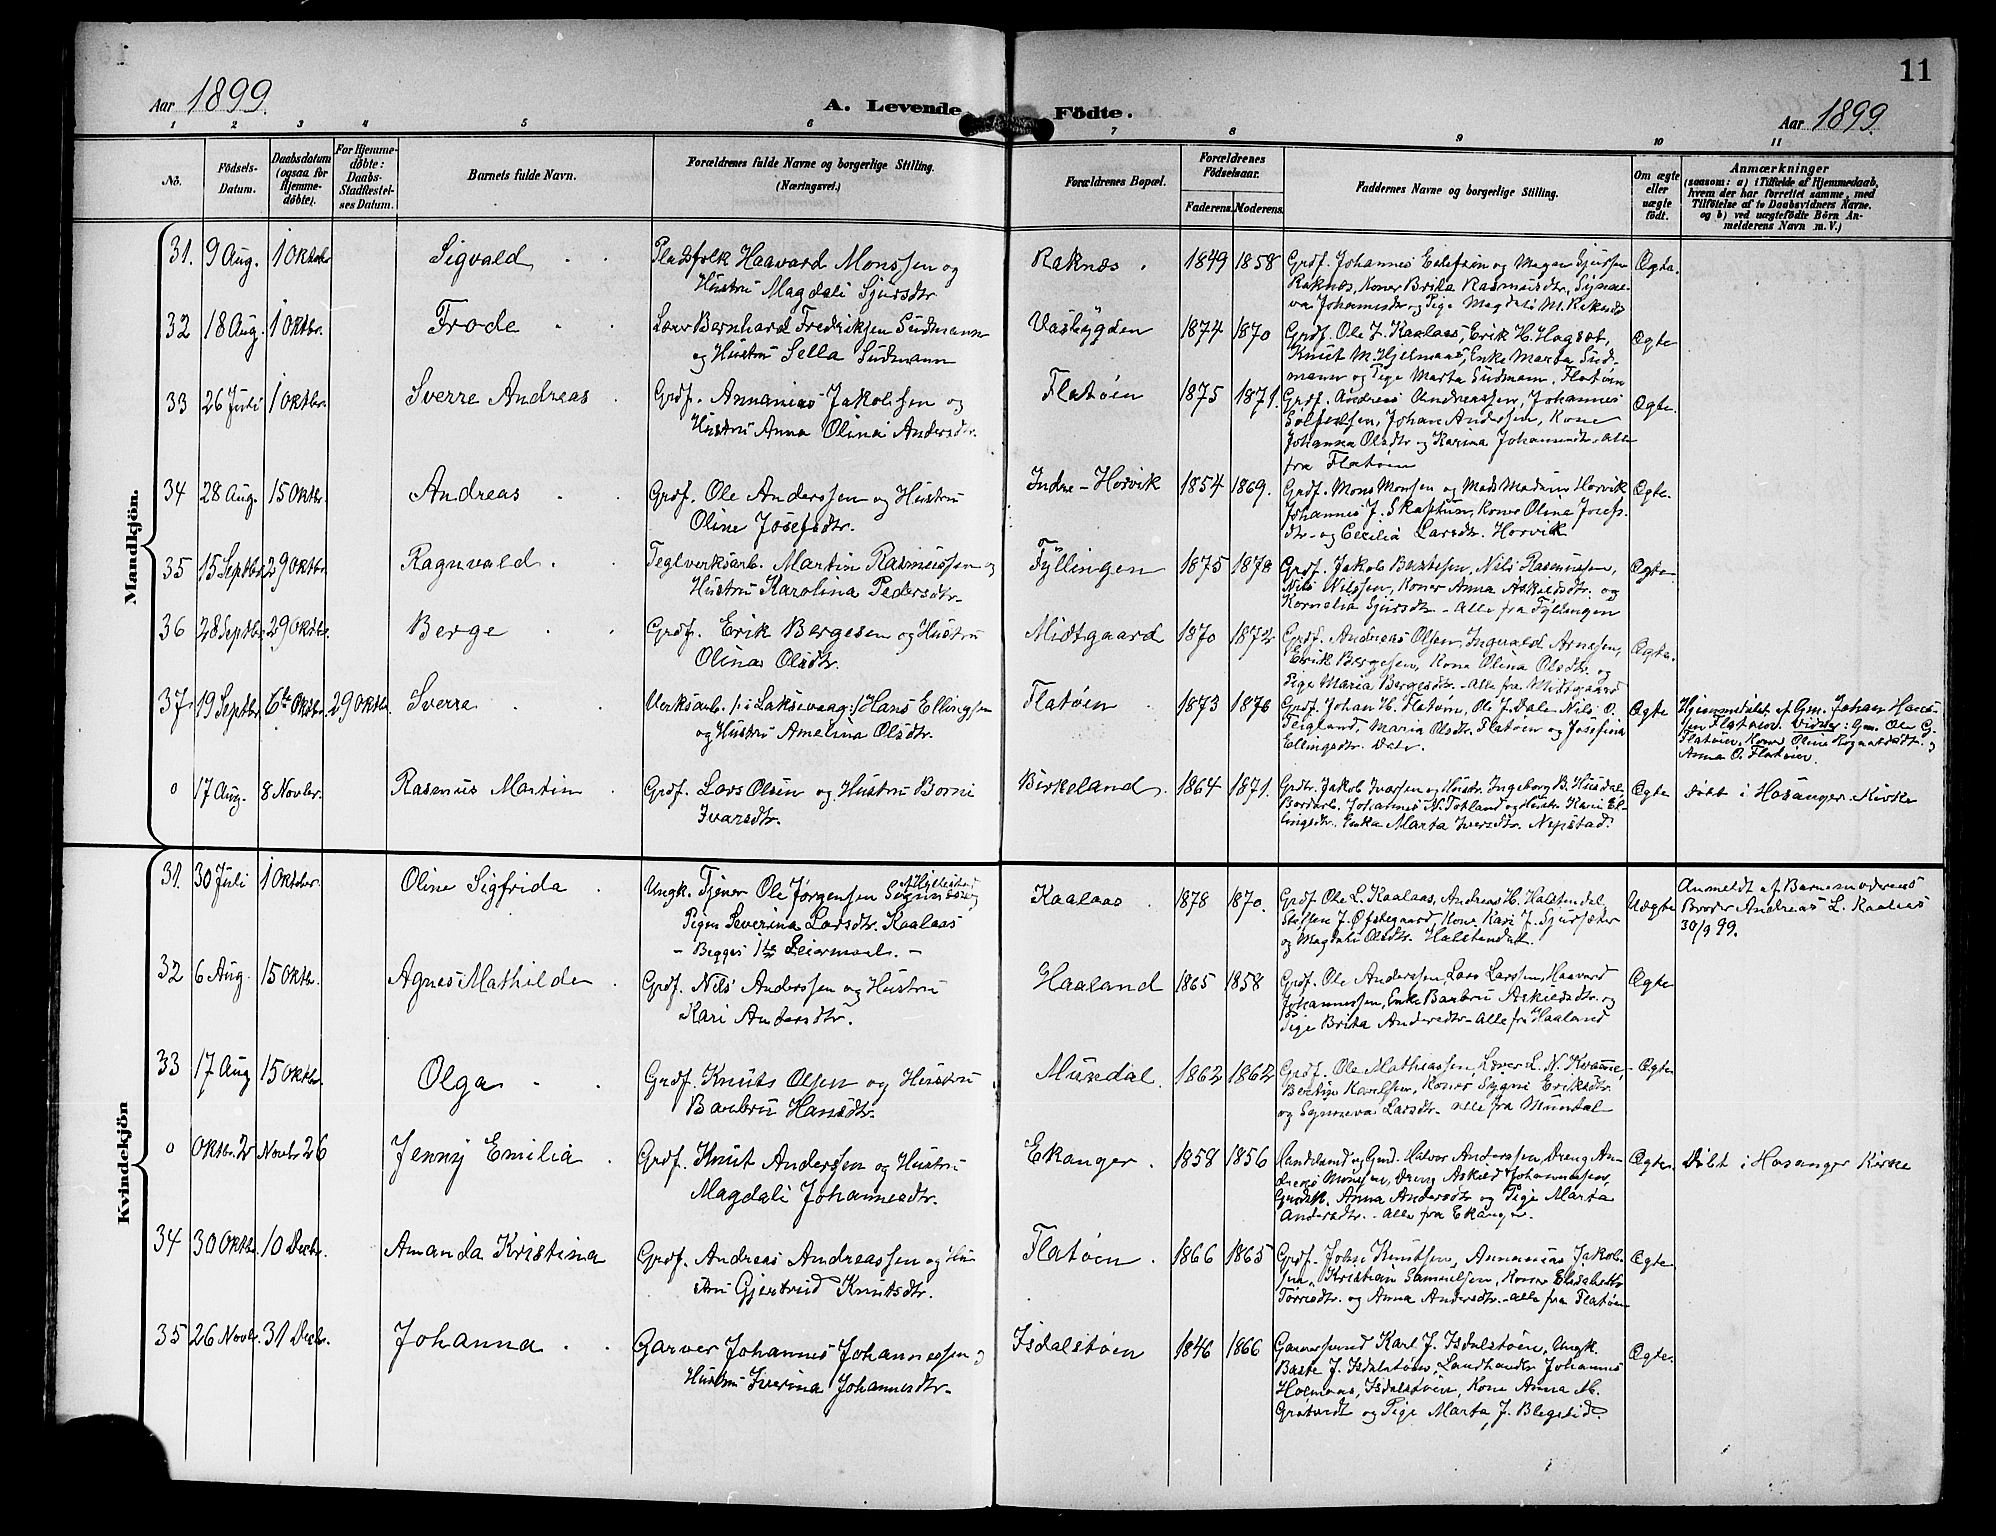 11
Aar 1899.
A. Levende Födte.
Aar 1899
1 2 3 4 5 6 7 8 9 10 11
No.
Födsels-
Datum.
Daabsdatum
(ogsaa for
Hjemme-
døbte).
For Hjemme-
døbte:
Daabs-
Stadfæstel-
ses Datum.
Barnets fulde Navn.
Forældrenes fulde Navne og borgerlige Stilling.
(Næringsvei.)
Forældrenes Bopæl.
Forældrenes
Fødselsaar.
Faderens. Moderens.
Faddernes Navne og borgerlige Stilling.
Om ægte
eller
uægte
født.
Anmærkninger
(saasom: a) i Tilfælde af Hjemmedaab,
hvem der har forrettet samme, med
Tilføielse af to Daabsvidners Navne,
og b) ved uægtefödte Börn An-
melderens Navn m. V.)
Mandkjön.
31. 9 Aug. 1 Oktobr Sigvald Pladsfolk Haavard Monssen og
Hustru Magdali Sjursdtr
Raknæs 1849 1858 Grdf. Johannes og Magne Sjursen
Raknæs, Koner Brita Rasmusdtr, Synne-
va Johannesdtr og Pige Magdali M. Reknes
Ægte.
32 18 Aug. 1 Oktbr. Frode Lærer Bernhard Fredriksen Sudmann
og Hustru Sella Sudmann
1874 1870 Grdf. Ole J. Kaalaas, Erik H. Hagset,
Knut M. Hjelmaas, Enke Marta Sud-
mann og Pige Marta Sudmann. Flatøen
Ægte
33 26 Juli 1 Oktbr. Sverre Andreas Grdf. Annanias Jakobsen og
Hustru Anna Olina Andersdtr.
Flatøen 1875 1871. Grdf. Andreas Andreassen, Johannes
Johan Anderssen, Kone
Johanna Olsdtr og Karina Johannesdtr. alle
fra Flatøen
Ægte.
34 28 Aug. 15 Oktbr. Andreas Grdf. Ole Anderssen og Hustru
Oline Josefsdtr.
Indre-Horvik 1854 1869. Grdf. Mons Monsen og Mads Madsen Horvik
Johannes J. Skaftun, Koner Oline Josefs-
dtr. og Cecilia Larsdtr. Horvik
Ægte.
35 15 Septbr 29 Oktbr. Ragnvald Teglverksarb. Martin Rasmussen og
Hustru Karolina Pedersdtr.
Fyllingen 1875 1878 Grdf. Jakob Nils Rasmussen,
Nils Nilssen, Koner Anna Askildsdtr. og
Kornelia Sjursdtr - Alle fra Fyllingen
Ægte
36 28 Septbr 29 Oktbr. Berge Grdf. Erik Bergesen og Hustru
Olina Olsdtr.
Midtgaard 1870 1872 Grdf. Andreas Olsen, Ingvald Arnesen,
Erik Bergesen, Kone Olina Olsdtr. og
Pige Maria Bergesdtr. - Alle fra Midtgaard
Ægte.
37 19 Septbr 6te Oktbr. 29 Oktbr. Sverre Verksarb. /: i Laksevaag :/ Hans Ellingsen
og Hustru Amelina Olsdtr.
Flatøen 1873 1876 Grdf. Johan H. Flatøen, Ole J. Dale, Nils O.
Teigland, Maria Olsdtr. Flatøen og Josefina
Ellingsdtr.
Ægte Hjemmedøbt af Gm. Johan Hans-
sen Flatøen. Vidner: Gm. Ole G.
Flatøen, Kone Oline og
Anna O. Flatøen.
0 17 Aug. 8 Novbr. Rasmus Martin Grdf. Lars Olsen og Hustru Borni
Ivarsdtr.
Birkeland 1864 1871. Grdbr. Jakob Ivarsen og Hustr. Ingeborg B. Husdal,
Johannes N. Totland og Hustr. Kari El-
lingsdtr. Enke Marta Iversdtr. Nepstad.
Ægte Døbt i Hosanger Kirke
Kvindekjön
31. 30 Juli 1 Oktober. Oline Sigfrida Ungk. Tjener Ole Jørgensen og
Pigen Severina Larsdtr. Kaalaas
- Begges 1te Leiermaal. -
Kaalaas 1878 1870. Grdf Ole L. Kaalaas, Andreas H. Halstendal,
Steffen J. Øfstegaard, Kone Kari J.
og Magdali Olsdtr. Halstendal.
Uægte Anmeldt af Barnemoderens
Broder Andreas L. Kaalaas
30/9 99.
32 6 Aug. 15 Oktbr. Agnes Mathilde Grdf. Nils Anderssen og Hustru
Kari Andersdtr.
Haaland 1865 1858 Grdf. Ole Anderssen, Lars Larssen, Haavard
Johannessen, Enke Barbru Askildsdtr. og
Pige Brita Andersdtr - Alle fra Haaland
Ægte
33 17 Aug 15 Oktbr. Olga Grdf. Knut Olsen og Hustru
Barbru Hansdtr.
Mundal. 1862 1862 Grdf. Ole Mathiassen, Lærer L. N. Kvamme,
Koner Sygni Eriksdtr.
og Synneva Larsdtr. alle fra Mundal
Ægte
0 Oktbr. 2 Novbr 26 Jenny Emilia Grdf. Knut Anderssen og Hustru
Magdali Johannesdtr.
Ekanger 1858 1856 Halvor Anderssen, Dreng An-
dreas Monsen, Dreng Askild Johannessen,
Anna Andersdtr og Pige Marta
Andersdtr. - Alle fra Ekanger.
Ægte Døbt i Hosanger Kirke
34 30 Oktbr. 10 Decbr. Amanda Kristina Grdf. Andreas Andreassen og Hu-
stru Gjertrud Knutsdtr.
Flatøen 1866 1865 Grdf. John Knutsen, Annanias Jakob-
sen, Kristian Samuelsen, Koner Elisabeth
Torrisdtr. og Anna Andersdtr. - alle fra Flatøen
Ægte
35 26 Novbr. 31 Decbr. Johanna Garver Johannes Johannessen og
Hustru Iverina Johannesdtr.
Isdalstøen 1846 1866 Garversvend Karl J. Isdalstøen, Ungk.
J. Isdalstøen, Landhandler Johannes
Holmaas, Isdalstøen, Kone Anna M.
og Pige Marta J.
Ægte.